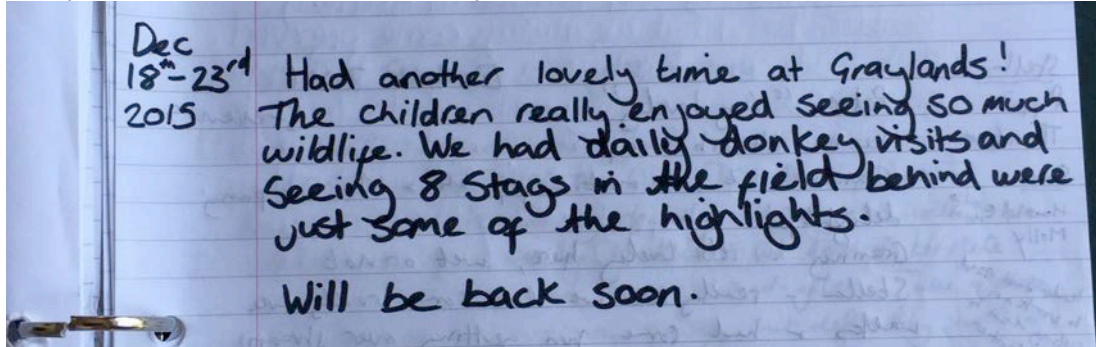 Dec
18th-23rd Had another lovely time at Graylands!
2015 The children really enjoyed seeing so much
wildlife. We had daily donkey visits and
seeing 8 Stags in the field behind were
just some of the highlights.
Will be back soon.